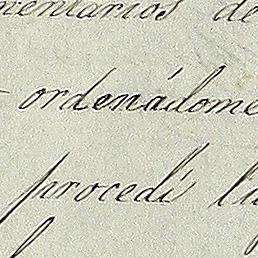 mentarios de
- ordenádome
procedi la